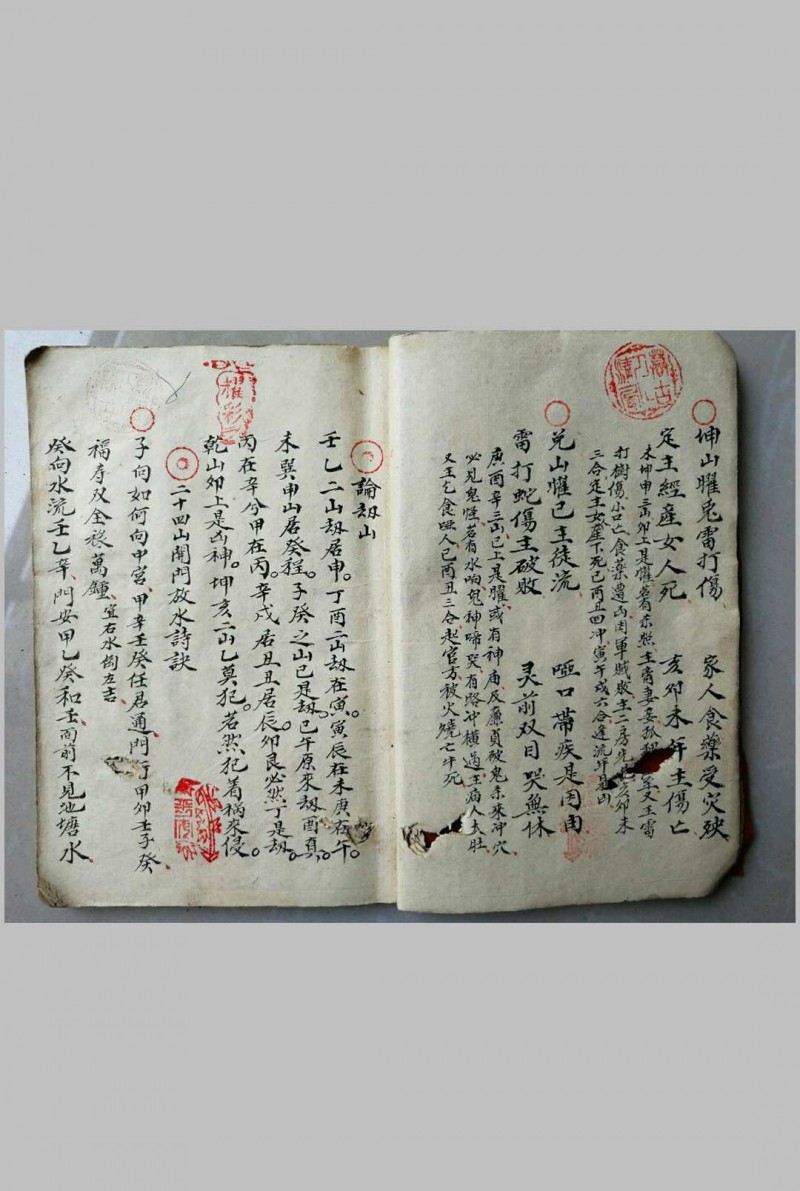 坤山曜兎雷打傷 家人食藥受災殃
定主經産女人死 亥卯未年主傷亡
未坤申三山卯上是曜若有杀然主商妻妾孤 年又王雷
打樹傷小口亡食藥遭凶因軍賊敗主二房先 亥卯未
三合定主女産下死巳酉丑四冲寅午戍六合逢流年見凶
兑山曜巳主徒流 啞口帶疾是因由
雷打蛇傷主破敗 灵前双目哭無休
庚酉辛三山巳上是曜或有神庙反廉貞破鬼杀來冲穴
必見鬼怪若有水响鬼神啼哭有路冲橫過主病人大肚
又主乞食啞人巳酉丑三合起官方被火燒亡牛死
論刼山
壬乙二山刼居申。丁酉二山刼在寅。寅辰在未庚在午。
未巽申山居癸程。子癸之山巳是刼。巳午原來刼酉真。
丙在辛兮甲在丙。辛戍居丑丑居辰。卯艮必然丁是刼。
乾山卯上是凶神。坤亥二山乙莫犯。若然犯着禍來侵。
二十四山開門放水詩訣
子向如何向中宮甲辛壬癸任君通門行甲卯壬子癸
福寿双全祿萬鍾宜右水倒左吉
癸向水流壬乙辛門安甲乙癸和壬面前不見池塘水
耀彩